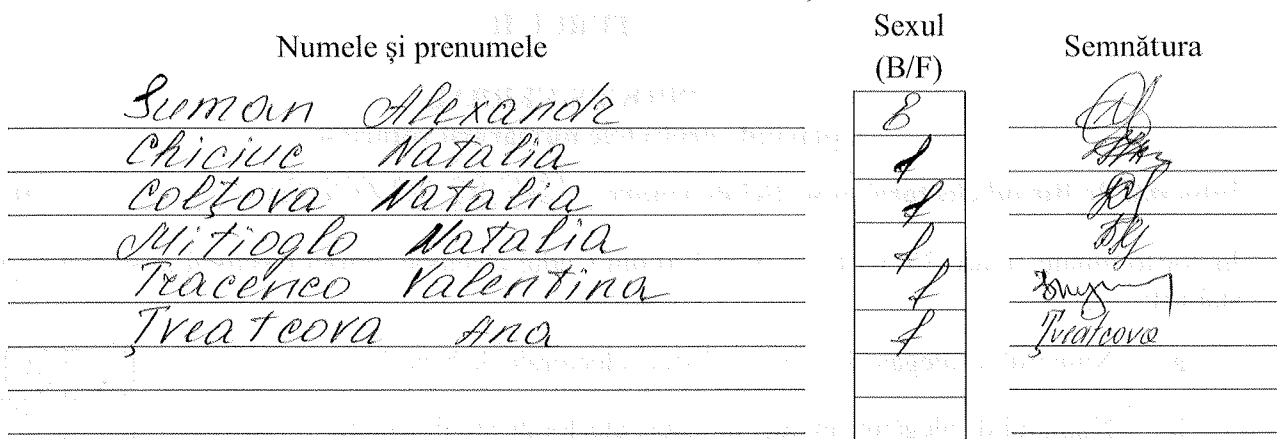 Numele și prenumele Sexul (B/F) Semnătura
Suman Alexandr B
Chiciuc Natalia f
Colțova Natalia f
Mitioglo Natalia f
Tracenco Valentina f
Țveatcova Ana f Țveatcova